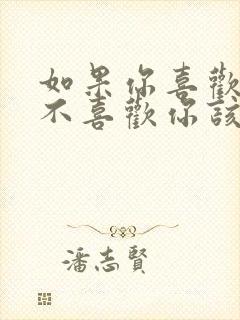 如果你喜歡
不喜歡你該
潘志賢